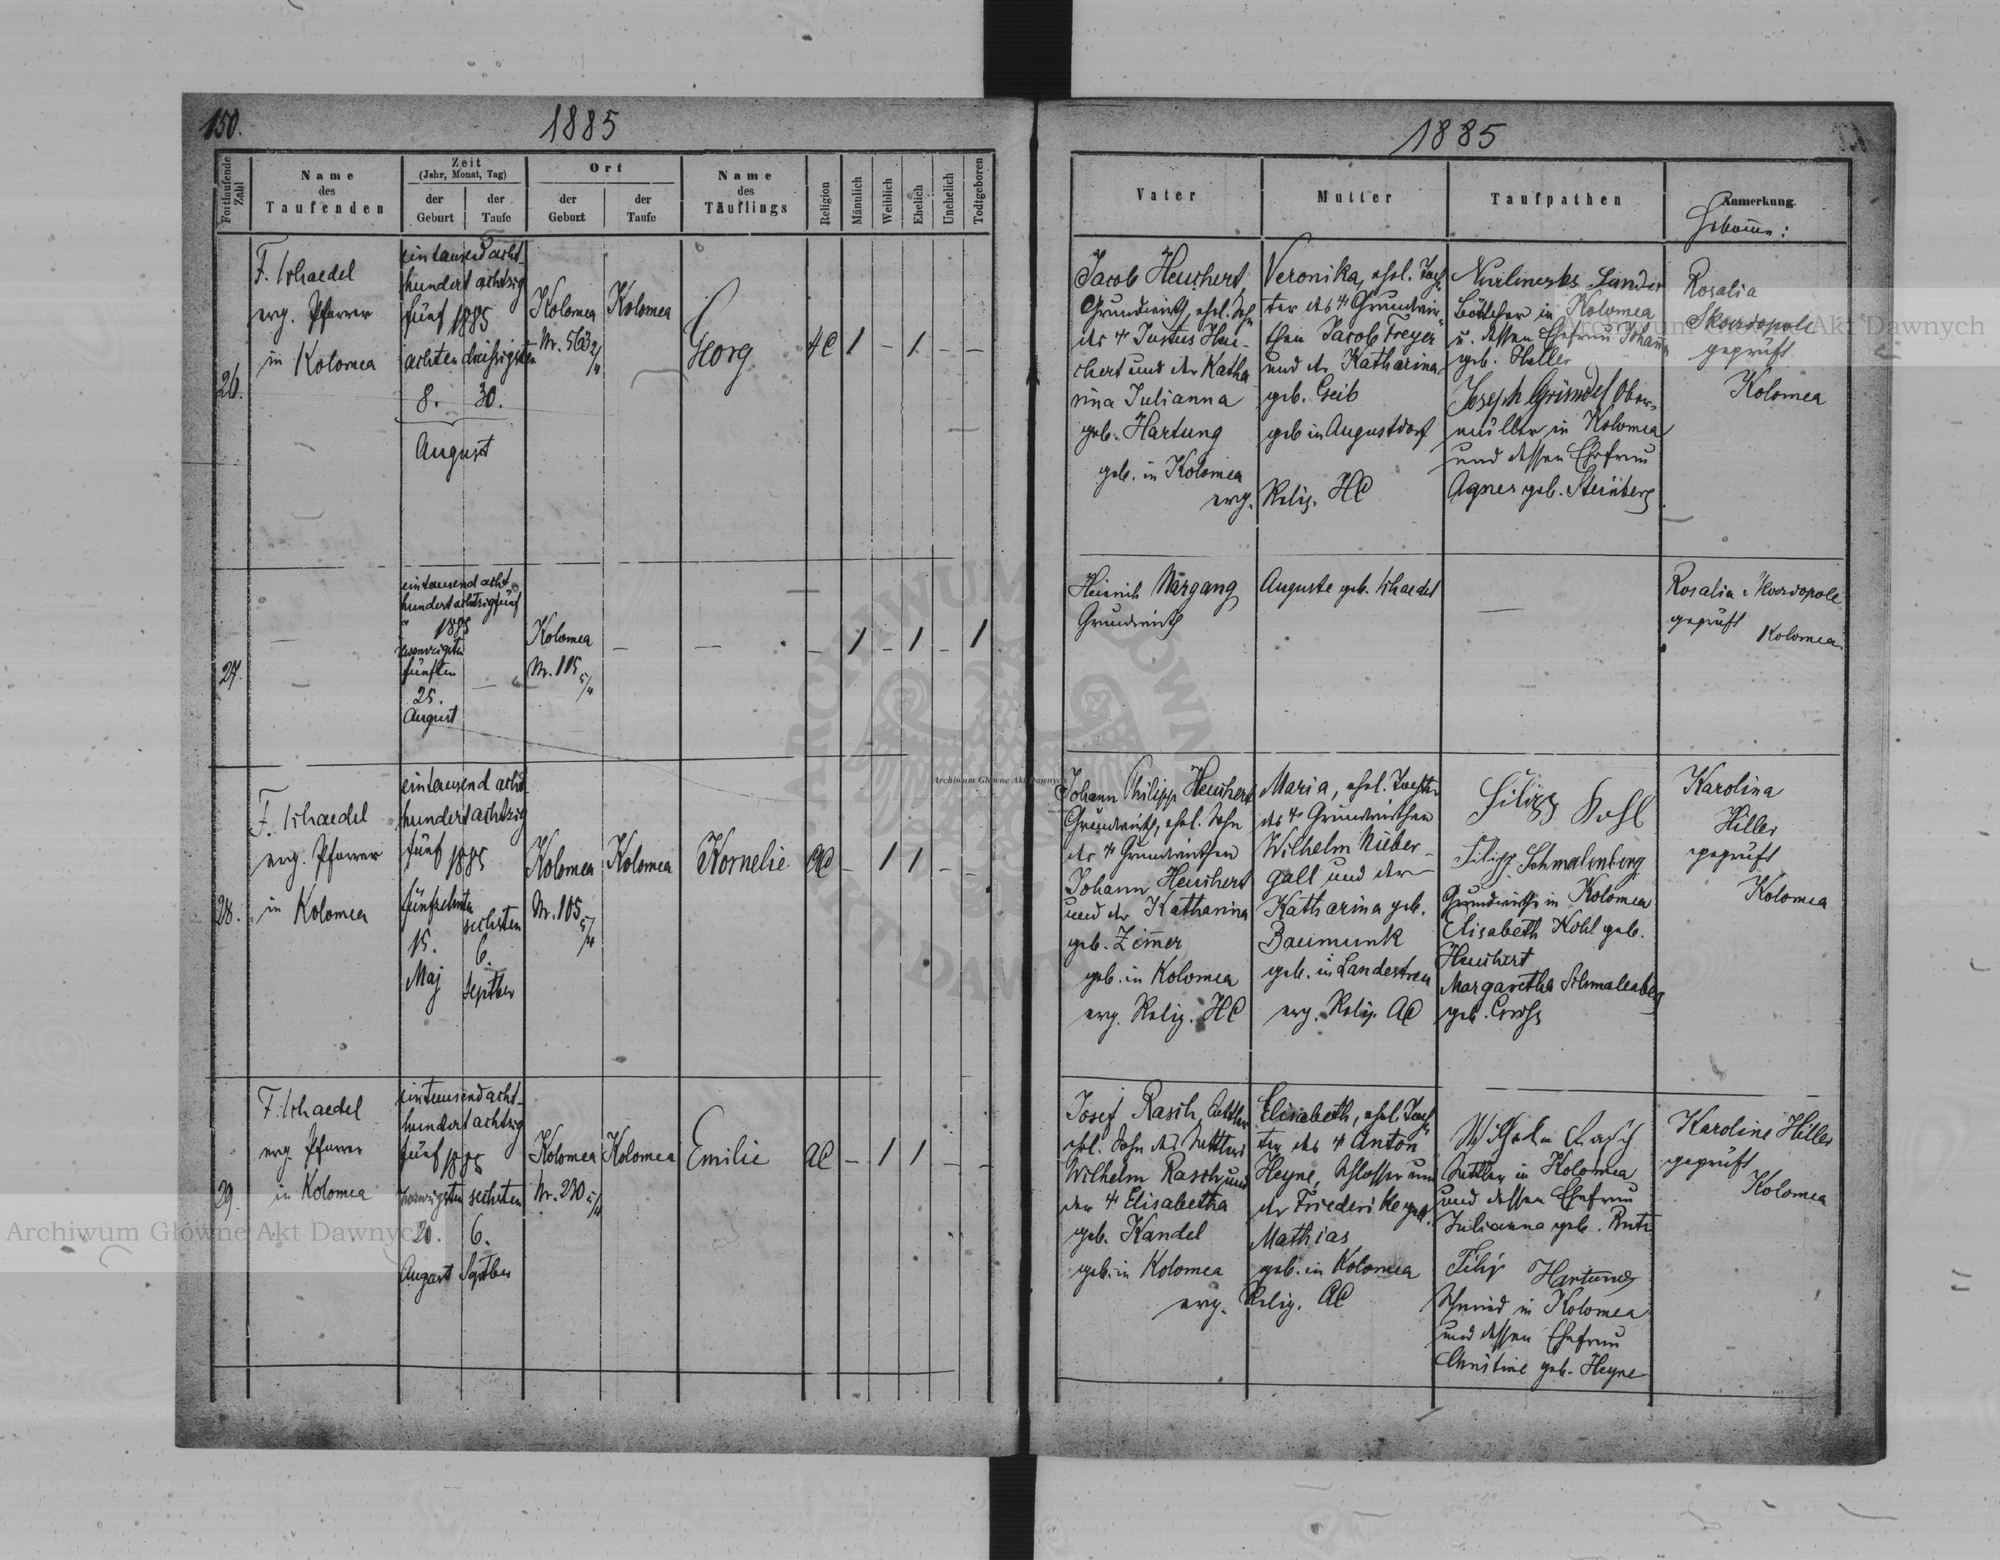 150.
1885
Fortlaufende Zahl
Name des Taufenden
Zeit
(Jahr, Monat, Tag)
der Geburt
der Taufe
Ort
der Geburt
der Taufe
Name des Täuflings
Religion
Männlich
Weiblich
Ehelich
Unehelich
Todtgeboren
26.
F. Schaedel
evg. Pfarrer
in Kolomea
eintausend acht-
hundert achtzig
fünf 1885
achten dreißigsten
8. 30.
August
Kolomea
Nr. 563 2/4
Kolomea
Georg
HC
1 - 1 - -
27.
eintausend acht
hundert achtzig fünf
1885
fünften
25.
August
Kolomea
Nr. 105 5/4
1 - 1 - 1
28.
F. Schaedel
evg. Pfarrer
in Kolomea
eintausend acht
hundert achtzig
fünf 1885
fünfzehnten
sechsten
15. 6.
Maj Septber
Kolomea
Nr. 105 5/4
Kolomea
Kornelie
AC
- 1 1 - -
29.
F. Schaedel
evg. Pfarrer
in Kolomea
eintausend acht-
hundert achtzig
fünf 1885
zwanzigsten sechsten
20. 6.
August Septber
Kolomea
Nr. 230 5/4
Kolomea
Emilie
AC
- 1 1 - -
1885
Vater
Mutter
Taufpathen
Anmerkung.
Hebamme:
Jacob Heuchert,
Grundwirth, ehel. Sohn
des + Justus Heu-
chert und der Katha
rina Julianna
geb. Hartung
geb. in Kolomea
evg.
Veronika, ehel. Toch-
ter des + Grundwir-
then Jacob Freyer
und der Katharina
geb. Geib
geb in Augustdorf
Relig. HC
Böttcher in Kolomea
u. dessen Ehefrau Johanna
geb. Heller
Joseph Gründel Ober-
müller in Kolomea
und dessen Ehefrau
Agnes geb. Steinberg
Rosalia
Skordopole
geprüft
Kolomea
Heinrich Margang
Grundwirth
Auguste geb. Schaedel
Rosalia Skordopole
geprüft
Kolomea
Johann Philipp Heuchert
Grundwirth, ehel. Sohn
des + Grundwirthen
Johann Heuchert
und der Katharina
geb. Zimmer
geb. in Kolomea
evg. Relig. HC
Maria, ehel. Tochter
des + Grundwirthen
Wilhelm Nieber-
gall und der
Katharina geb.
Baumunk
geb. in Landestreu
evg. Relig. AC
Filipp Kohl
Filipp Schmalenberg
Grundwirthe in Kolomea
Elisabeth Kohl geb.
Heuchert
Margaretha Schmalenberg
geb. Gross
Karolina
Hiller
geprüft
Kolomea
Josef Rasch, Sattler
ehel. Sohn des Sattlers
Wilhelm Rasch und
der + Elisabetha
geb. Kandel
geb. in Kolomea
evg.
Elisabeth, ehel. Toch-
ter des + Anton
Heyne, Schlosser und
der Friederike geb.
Mathias
geb. in Kolomea
Relig. AC
Wilhelm Rasch
Sattler in Kolomea
und dessen Ehefrau
Julianna geb. Butz
Filip Hartung
Schmied in Kolomea
und dessen Ehefrau
Christine geb. Heyne
Karoline Hiller
geprüft
Kolomea
Archiwum Główne Akt Dawnych
Archiwum Główne Akt Dawnych
Archiwum Główne Akt Dawnych